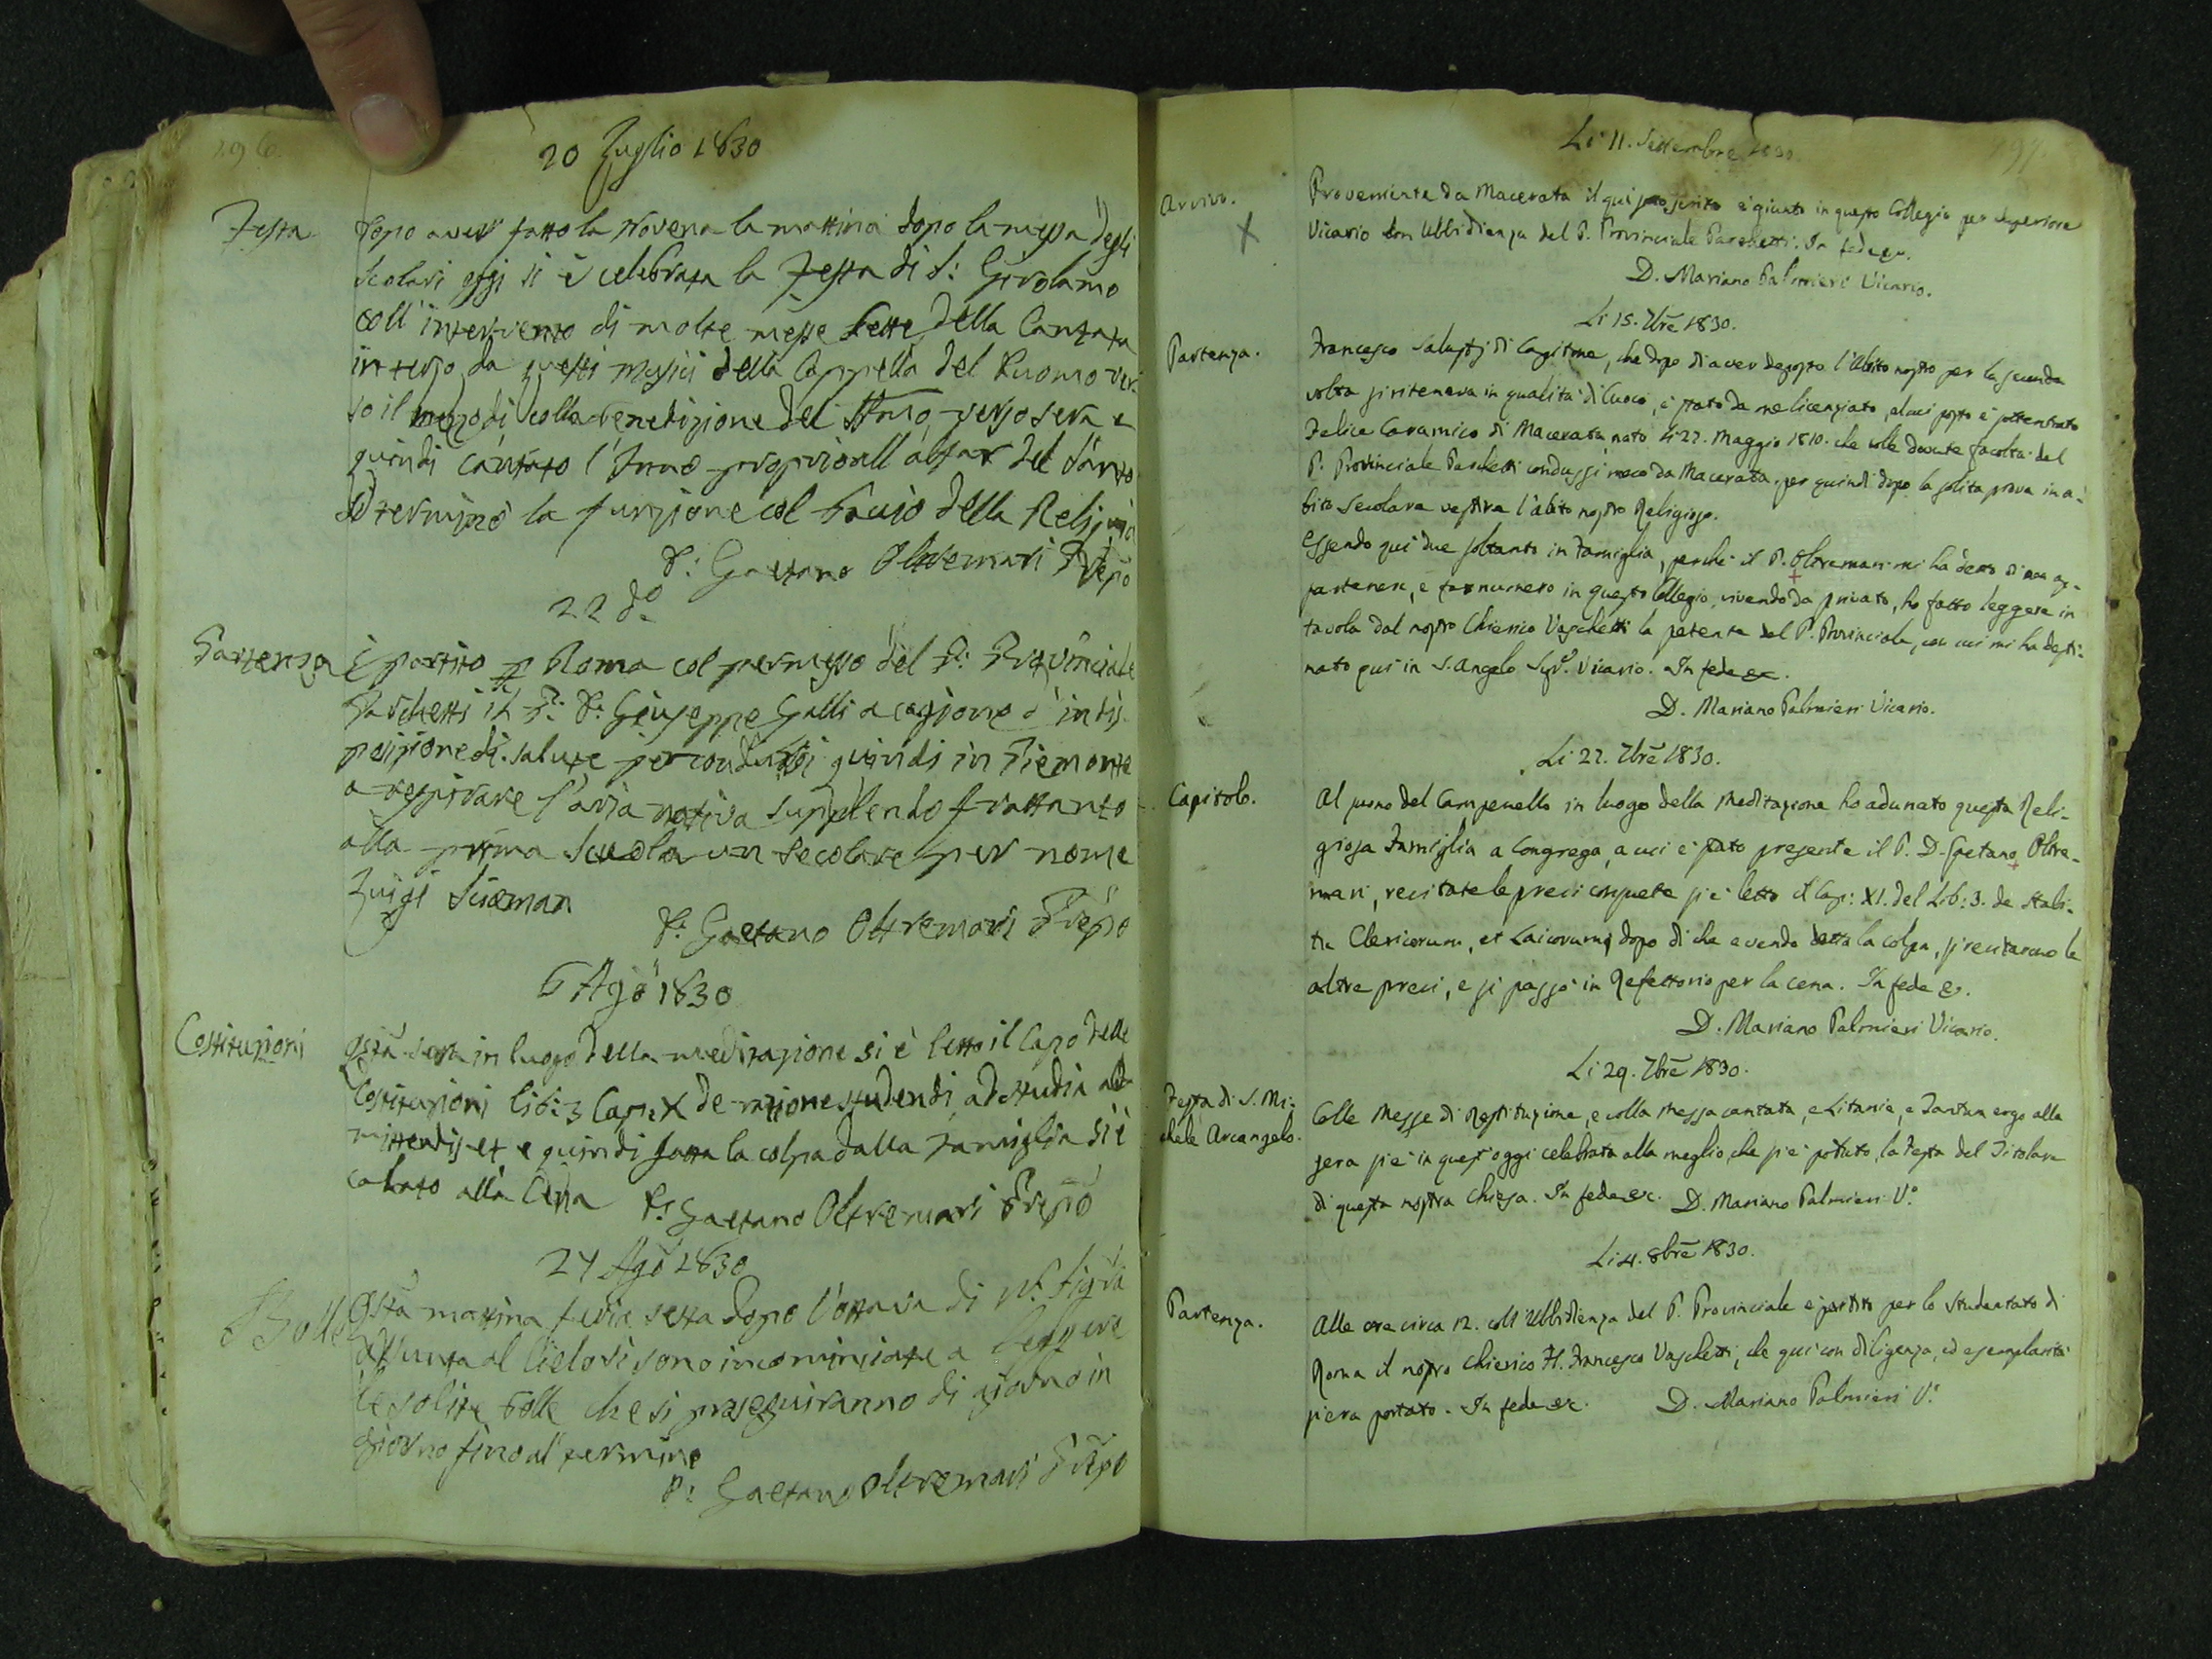 296.
20 Luglio 1830
Festa
Dopo aver fatto la Novena la mattina dopo la messa degli
Scolari oggi si è celebrata la Festa di S: Girolamo
coll' intervento di molte messe lette, della Cantata
in terzo da questi Musici della Cappella del Duomo ver:
so il mezzodì colla benedizione del SSmo verso sera e
quindi cantato l'Inno proprio all' altar del Santo
si terminò la funzione col bacio della Reliquia
D: Gaetano Oltremari Prepo
22 do
Partenza
È partito p Roma col permesso del P: Provinciale
Parchetti il P: D: Giuseppe Galli a cagione d' indis
posizione di salute per condursi quindi in Piemonte
a respirare l'aria nativa supplendo frattanto
alla prima Scuola un Secolare per nome
Luigi
D: Gaetano Oltremari Prepo
6 Ago 1830
Costituzioni
Qsta sera in luogo della meditazione si è letto il Capo delle
Costituzioni lib: 3 Cap: X de ratione studendi, ad studia ad
mittendis et e quindi fatta la colpa dalla Famiglia si è
calato alla Cena D: Gaetano Oltremari Prepo
27 Ago 1830
Bolle
Qsta mattina feria sesta dopo l'ottava di Na Signa
Assunta al Cielo si sono incominciate a leggere
le solite bolle che si proseguiranno di giorno in
giorno fino al termine
D: Gaetano Oltremari Prepo
297.
Li 11. Settembre 1830.
Arrivo.
Proveniente da Macerata il qui è giunto in questo Collegio per Superiore
Vicario con Ubbidienza del P. Provinciale Parchetti. In fede &c.
D. Mariano Palmieri Vicario.
Li 15. 7bre 1830.
Partenza.
Francesco Salustj di Cagli che dopo di aver deposto l'Abito nostro per la seconda
volta si riteneva in qualità di Cuoco, è stato da me licenziato, al cui posto è sottentrato
Felice Caramico di Macerata nato li 27. Maggio 1810. che colle dovute facoltà del
P. Provinciale Parchetti condussi meco da Macerata, per quindi dopo la solita prova in a:
bito Secolare vestire l'abito nostro Religioso.
Essendo qui due soltanto in Famiglia, perchè il P. Oltremari mi ha detto di non ap:
partenere, e far numero in questo Collegio, vivendo da privato, ho fatto leggere in
tavola dal nostro Chierico Vaschetti la patente del P. Provinciale, con cui mi ha desti:
nato qui in S. Angelo Supre. Vicario. In fede &c.
D. Mariano Palmieri Vicario.
Li 22. 7bre 1830.
Capitolo.
Al suono del Campanello in luogo della Meditazione ho adunato questa Reli-
giosa Famiglia a Congrega, a cui è stato presente il P. D. Gaetano Oltre-
mari, recitate le preci consuete si è letto il Cap: XI. del Lib: 3. de stabi-
tu Clericorum, et Laicorum, dopo di che avendo detta la colpa, si recitarono le
altre preci, e si passò in Refettorio per la cena. In fede &c.
D. Mariano Palmieri Vicario.
Li 29. 7bre 1830.
Festa di S. Mi:
chele Arcangelo.
Colle Messe di Restituzione, e colla Messa cantata, e Litanie, e Tantum ergo alla
sera si è in quest'oggi celebrata alla meglio, che si è potuto, la Festa del Titolare
di questa nostra Chiesa. In fede &c. D. Mariano Palmieri Vo.
Li 4. 8bre 1830.
Partenza.
Alle ore circa 12. coll' Ubbidienza del P. Provinciale è partito per lo Studentato di
Roma il nostro Chierico Fl. Francesco Vaschetti, che qui con diligenza, ed esemplarità
si era portato. In fede &c. D. Mariano Palmieri Vo.